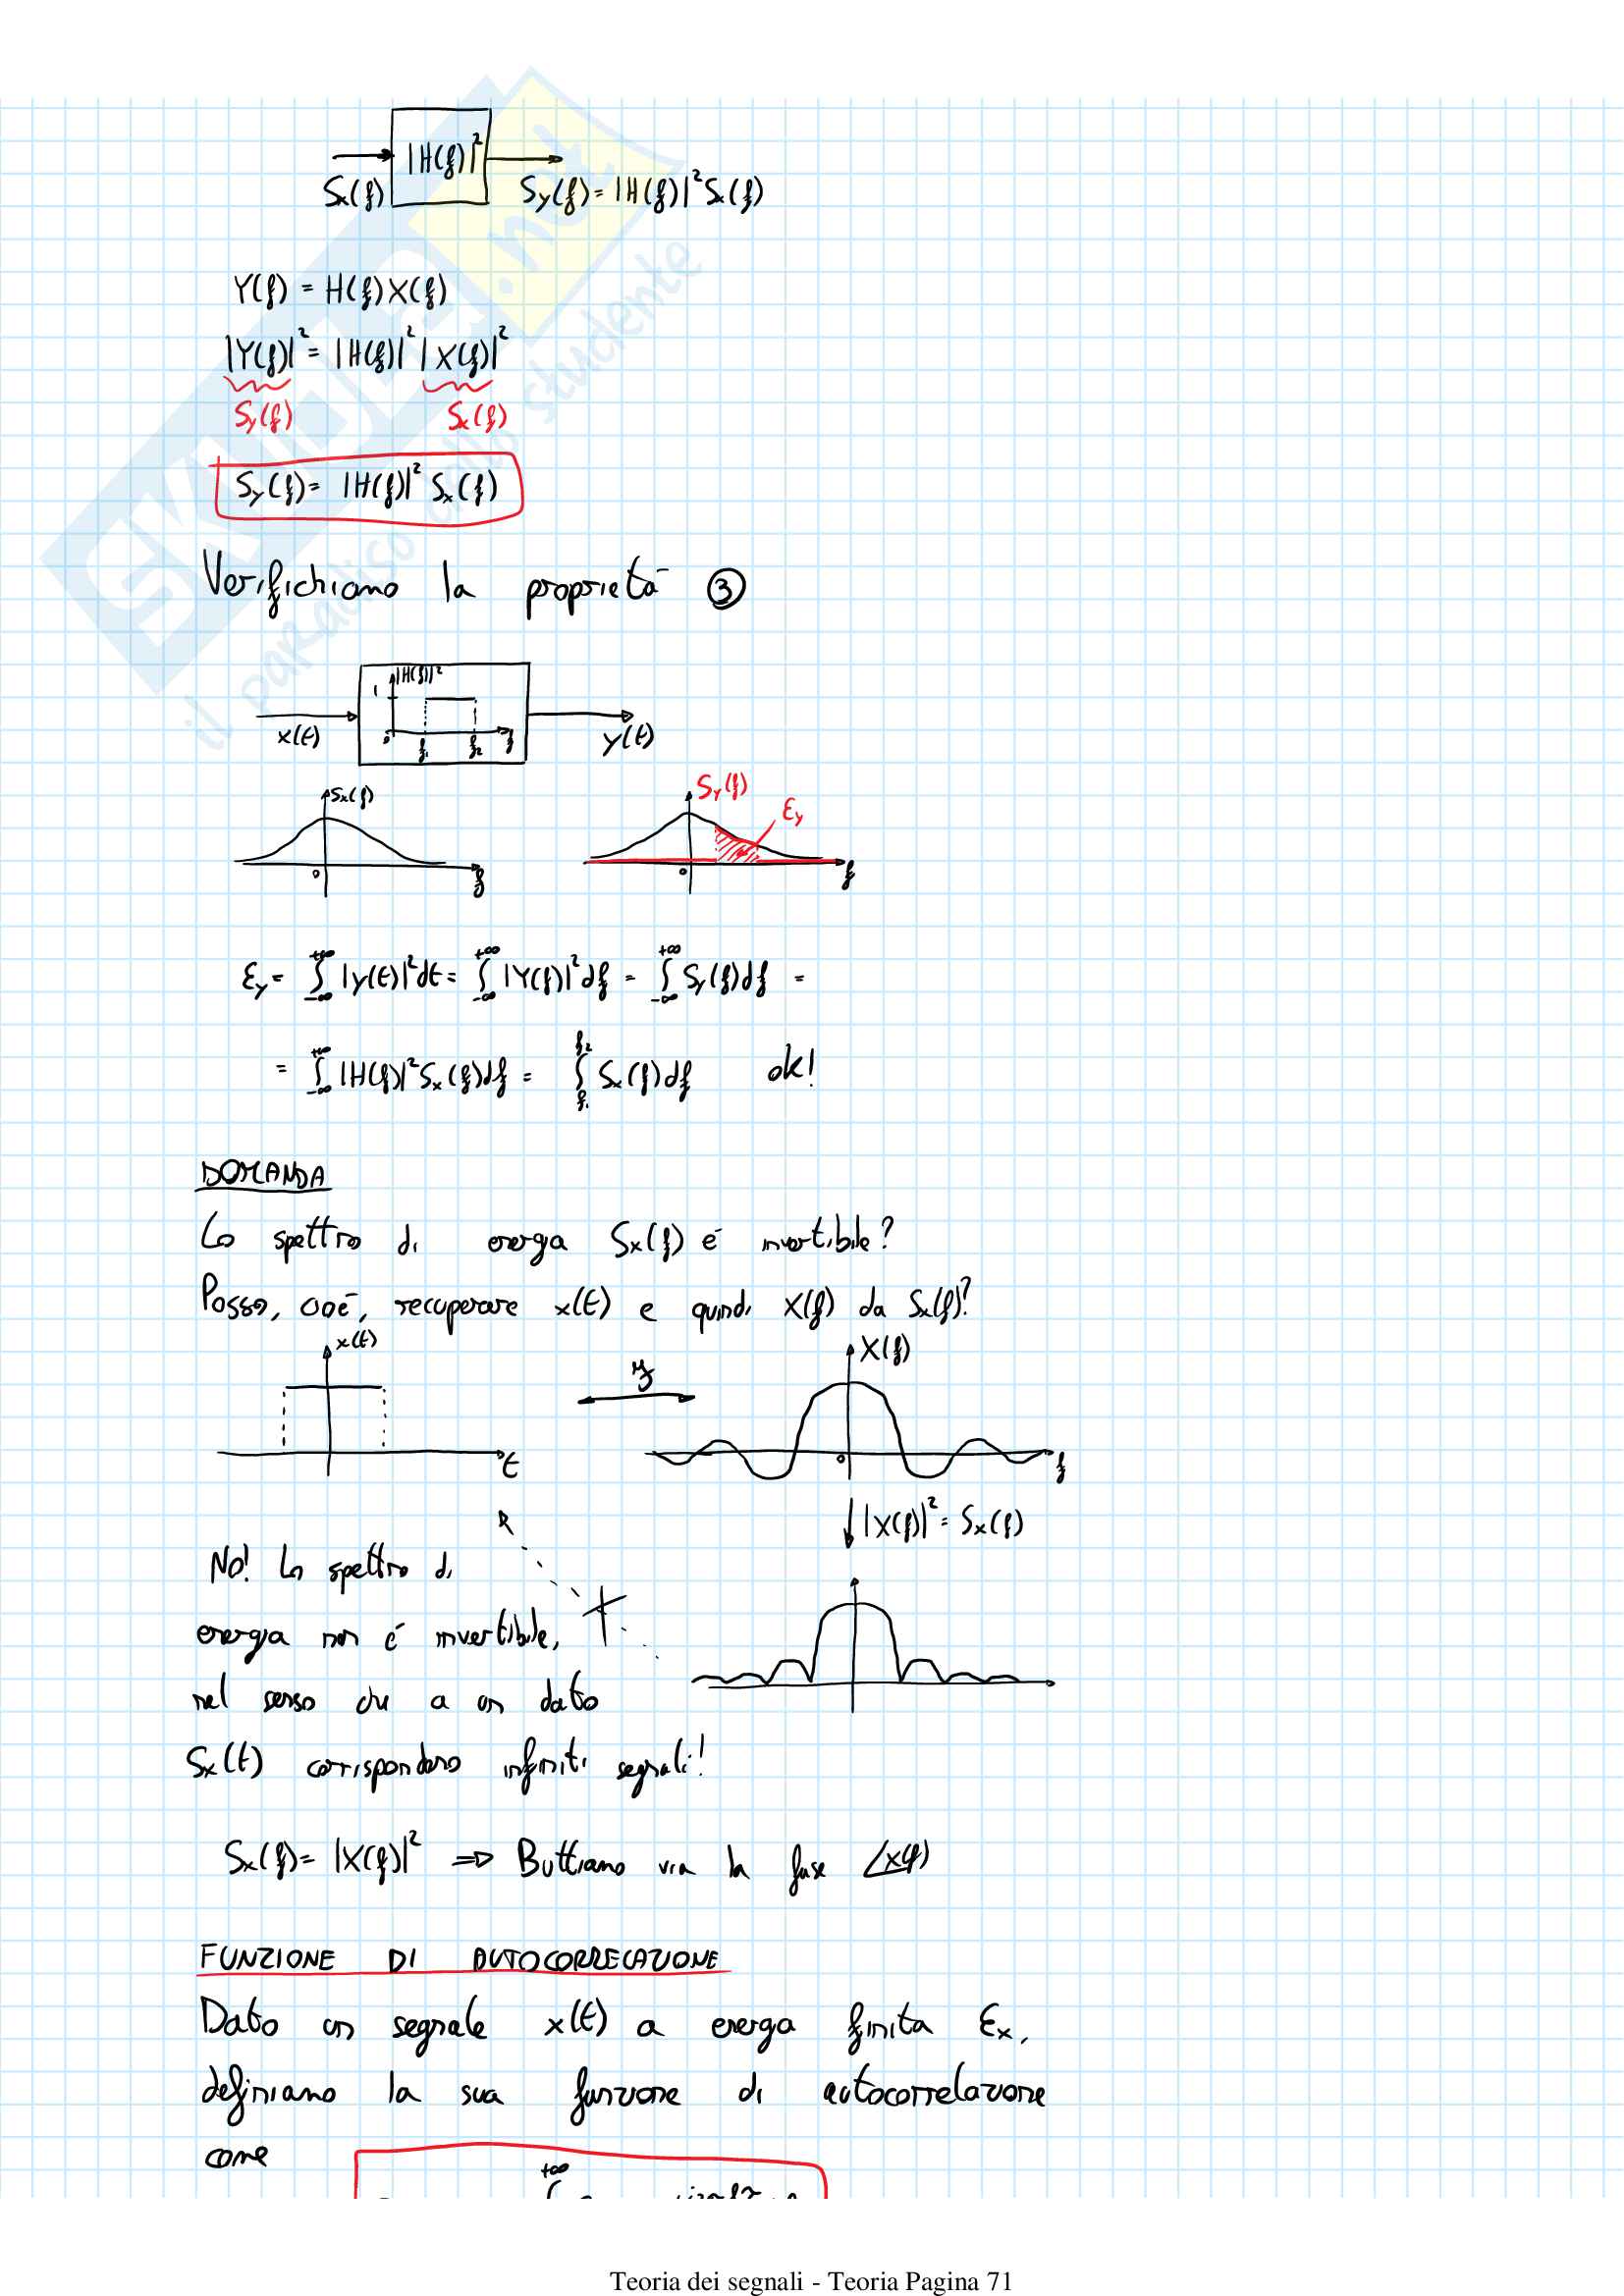 |H(f)|²
Sx(f)
Sy(f) = |H(f)|² Sx(f)
Y(f) = H(f) X(f)
|Y(f)|² = |H(f)|² |X(f)|²
Sy(f) Sx(f)
Sy(f) = |H(f)|² Sx(f)
Verifichiamo la proprietà ③
|H(f)|²
1
x(t) 0 f₁ f₂ f y(t)
Sx(f) Sy(f)
Ey
0 f 0 f
Ey = ∫_{-∞}^{+∞} |y(t)|² dt = ∫_{-∞}^{+∞} |Y(f)|² df = ∫_{-∞}^{+∞} Sy(f) df =
= ∫_{-∞}^{+∞} |H(f)|² Sx(f) df = ∫_{f₁}^{f₂} Sx(f) df ok!
DOMANDA
Lo spettro di energia Sx(f) è invertibile?
Posso, cioè, recuperare x(t) e quindi X(f) da Sx(f)?
x(t) X(f)
t 0 f
|X(f)|² = Sx(f)
NO! Lo spettro di
energia non è invertibile,
nel senso che a un dato
Sx(t) corrispondono infiniti segnali!
Sx(f) = |X(f)|² ⇒ Buttiamo via la fase ∠X(f)
FUNZIONE DI AUTOCORRELAZIONE
Dato un segnale x(t) a energia finita Ex,
definiamo la sua funzione di autocorrelazione
come
+∞
SKUOLA.net
il paradiso dello studente
Teoria dei segnali - Teoria Pagina 71